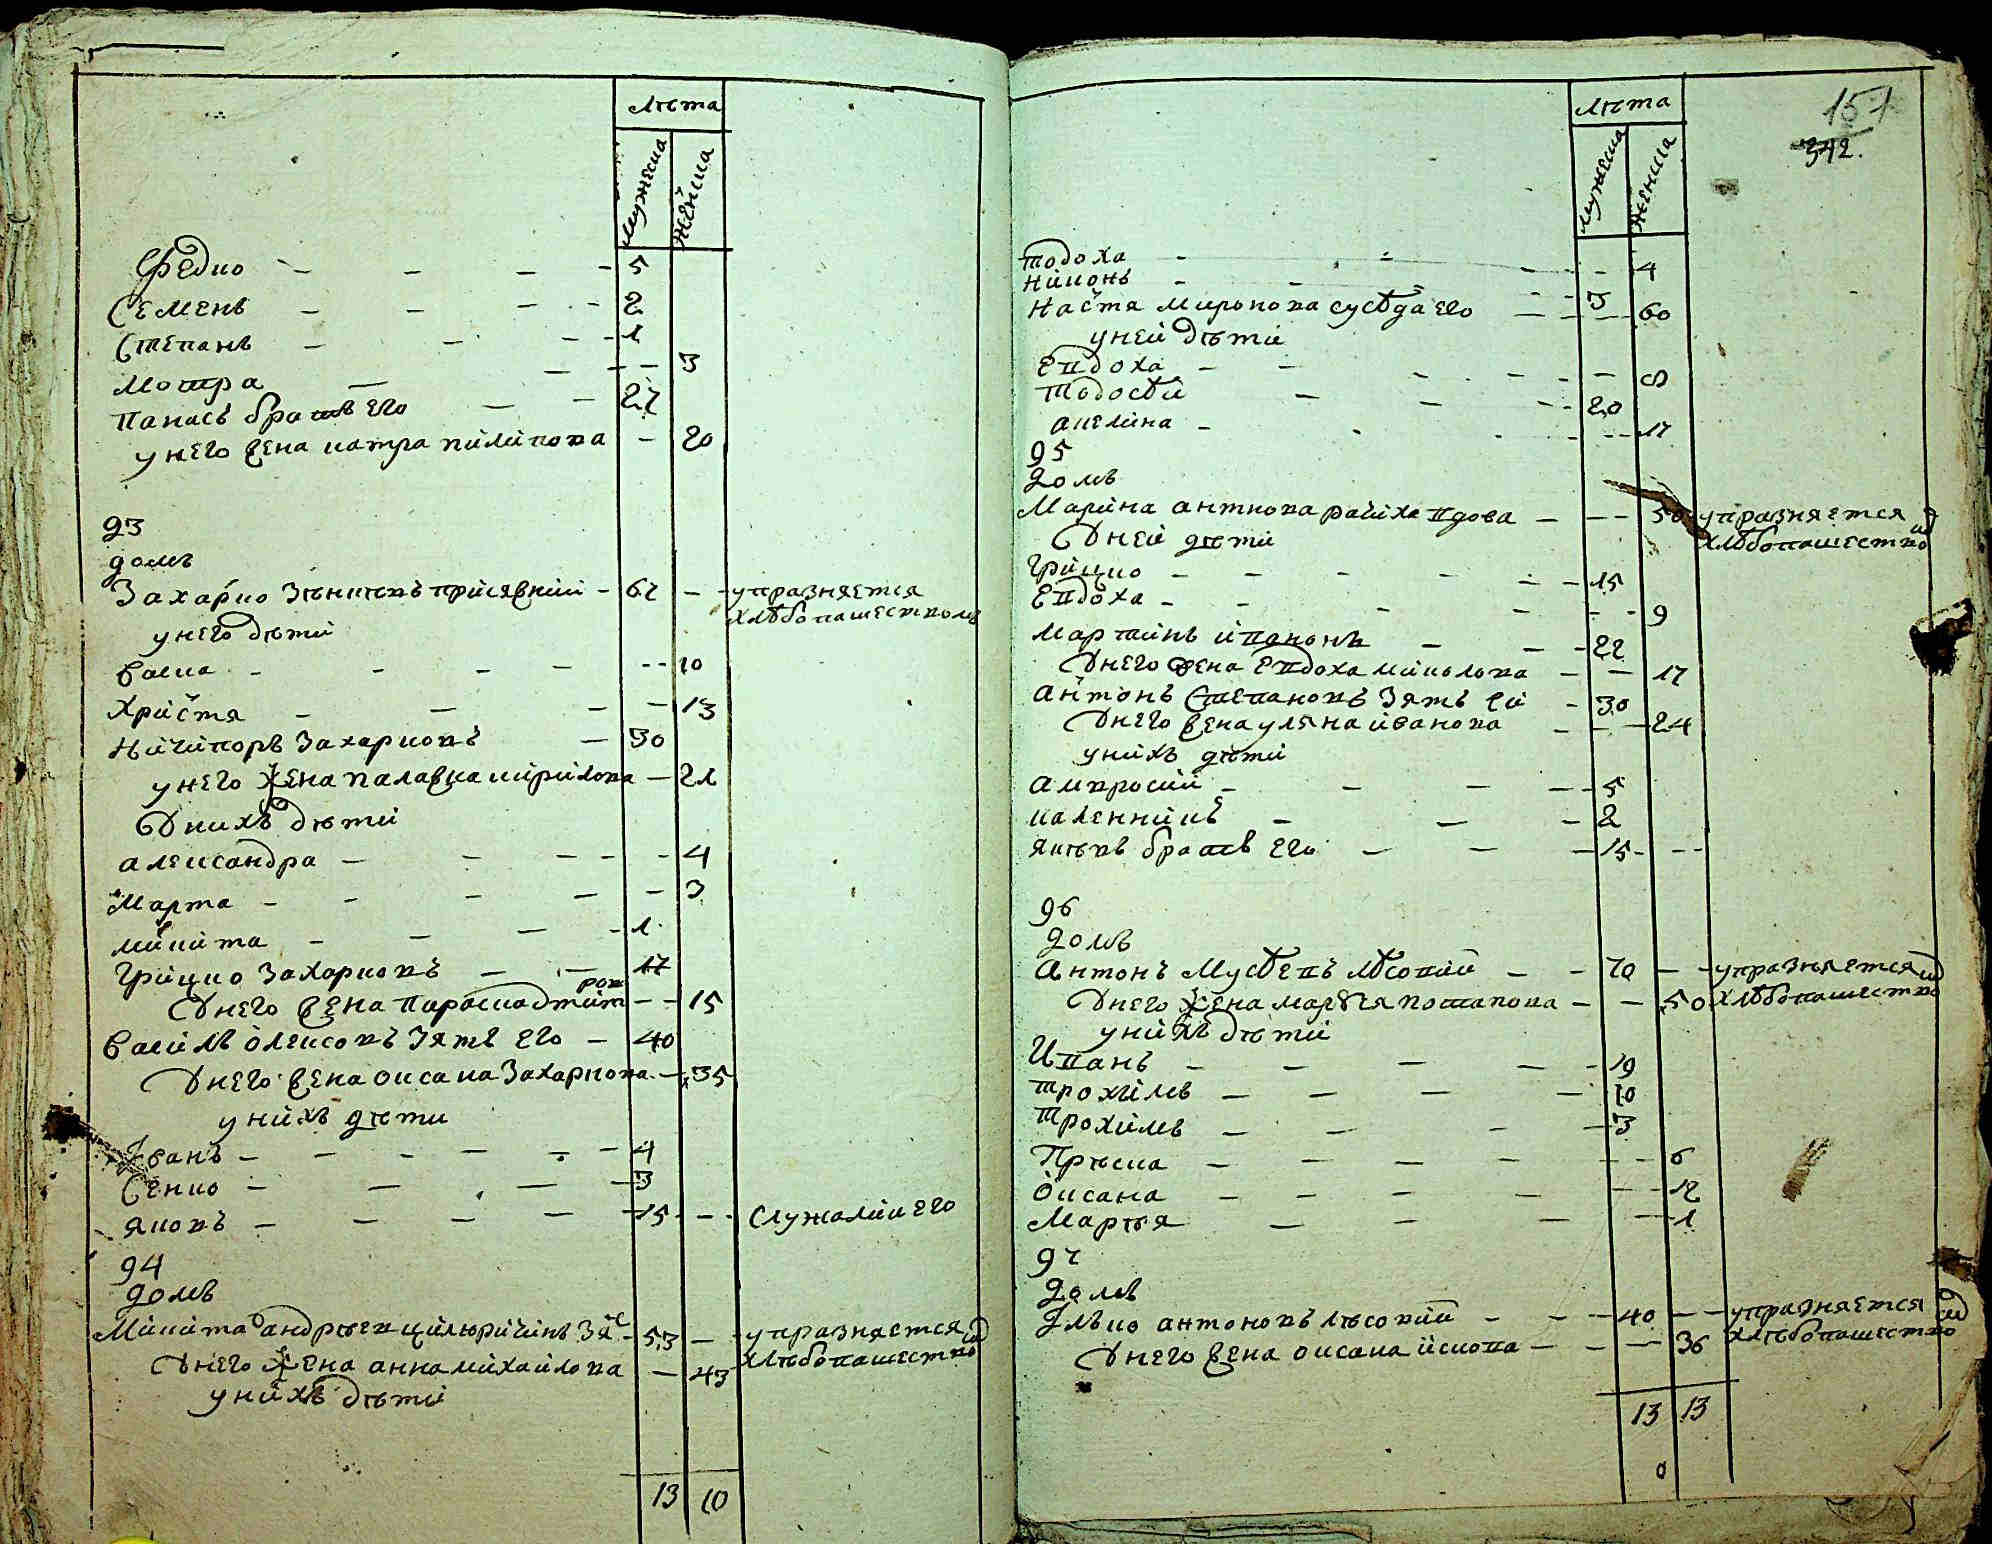 лѣта
мужеска
женска
Федко — — — 5
Семенъ — — — 2
Степанъ — — — 1
мотра — — — 3
Панасъ братъ его — — 27
у него жена катра пилипова — 20
93
домъ
Захарко Зѣнковъ присяжній — 67 — упразняется
хлѣбопашествомъ
у него дѣти
васка — — — — 10
христя — — — — 13
ничипоръ Захарковъ — 30
у него жена палажка кирилова — 21
У нихъ дѣти
александра — — — — 4
марта — — — — 3
микита — — — 1
Грицко Захарковъ — — 17
У него жена Параска дмитрова — — 15
василь олексовъ Зять его — 40
У него жена оксана Захаркова — 35
у нихъ дѣти
Иванъ — — — — 4
Сенко — — — — 3
яковъ — — — — 15 — — служалий его
94
домъ
Микита андрѣевъ — 53 — упразняется
хлѣбопашество
У него жена анна михайлова — 43
у нихъ дѣти
13 10
лѣта
мужеска
женска
151
342.
тодоха — — — — 4
никонъ — — — 3
настя миронова сусѣда его — — 60
у ней дѣти
Евдоха — — — — 8
тодосѣй — — — 20
акелина — — — 17
95
домъ
Марина антонова вдова — — — 50 упразняется
хлѣбопашество
У ней дѣти
Грицко — — — — 15
Евдоха — — — — 9
мартинъ ивановъ — — 22
У него жена Евдоха миколова — — 17
антонъ Степановъ Зять ей — 30
У него жена уляна иванова — — 24
у нихъ дѣти
амвросий — — — 5
каленникъ — — — 2
яковъ братъ его — — — 15 — —
96
домъ
Антонъ Мусѣевъ лѣсовий — — 70 — упразняется
хлѣбопашество
У него жена марѣя потапова — — 50
у нихъ дѣти
Иванъ — — — — 19
трохимъ — — — — 10
трохимъ — — — 3
Прѣска — — — — 6
Оксана — — — — 12
Марѣя — — — 1
97
домъ
Илько антоновъ лѣсовий — — 40 — упразняется
хлѣбопашество
У него жена оксана искова — — 36
13 13
0